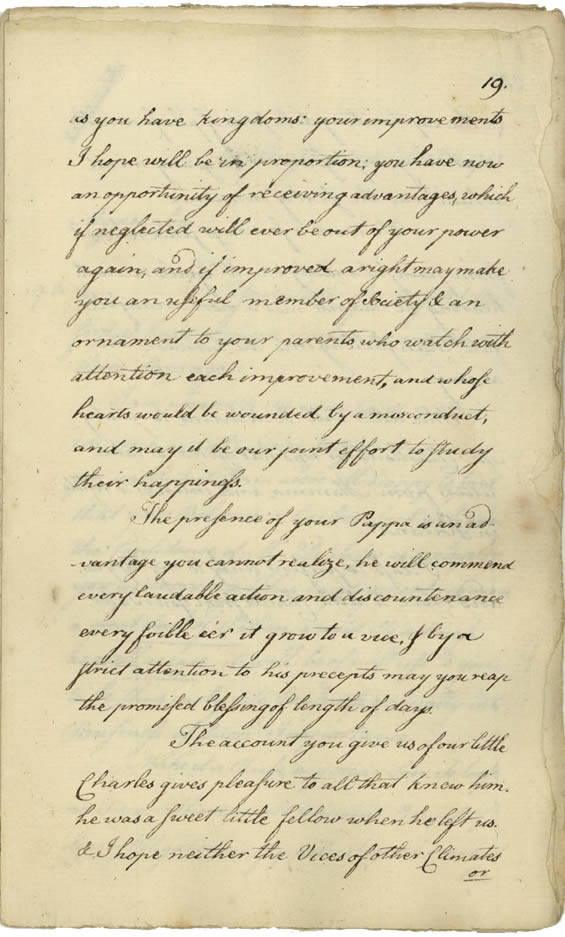 19.
as you have kingdoms: your improvements
I hope will be in proportion; you have now
an opportunity of receiving advantages, which
if neglected will ever be out of your power
again, and if improved aright may make
you an useful member of Society & an
ornament to your parents, who watch with
attention each improvement, and whose
hearts would be wounded by a misconduct,
and may it be our joint effort to study
their happiness.
The presence of your Pappa is an ad-
-vantage you cannot realize, he will commend
every laudable action and discountenance
every foible e'er it grow to a vice, & by a
strict attention to his precepts may you reap
the promised blessing of length of days.
The account you give us of our little
Charles gives pleasure to all that knew him.
he was a sweet little fellow when he left us.
& I hope neither the Vices of other Climates
or